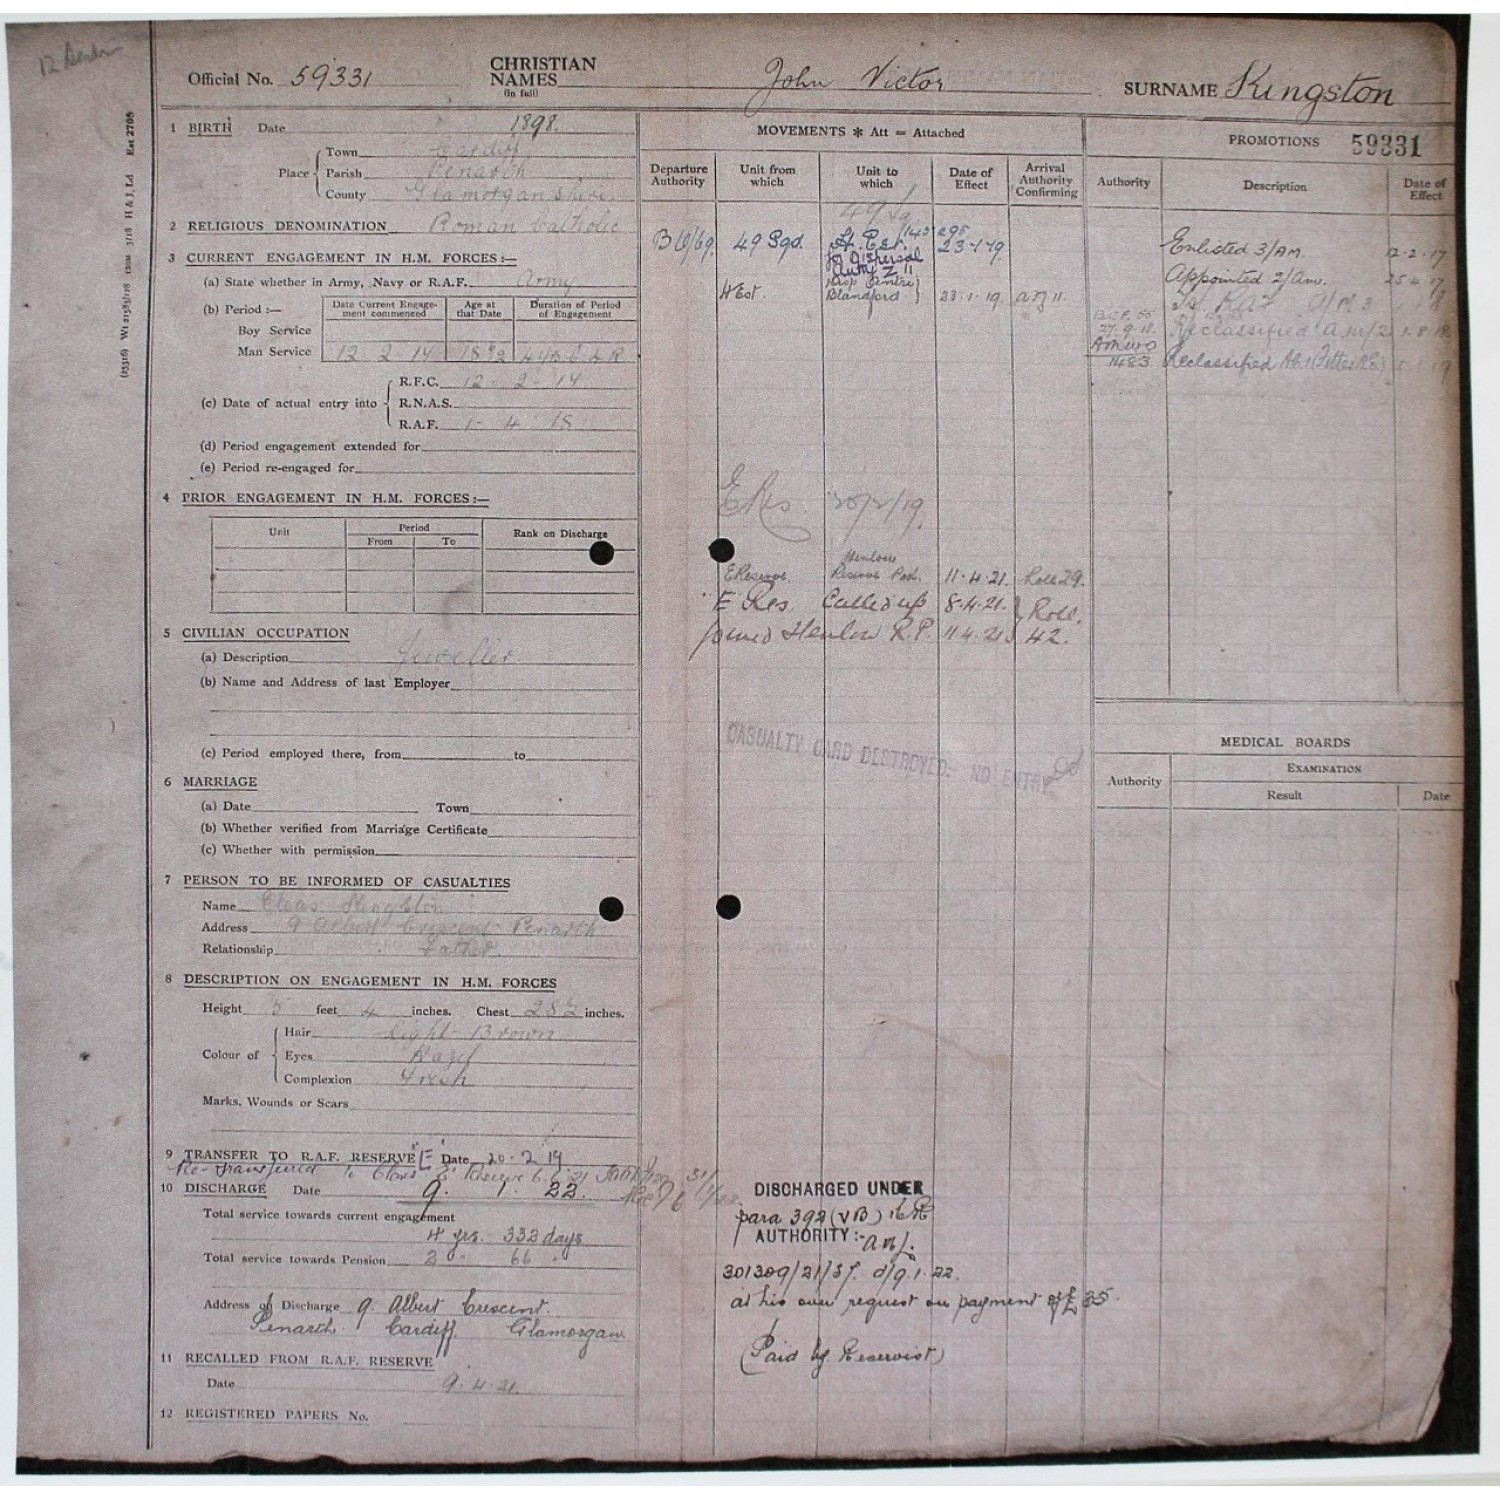 Official No. 59331 CHRISTIAN NAMES (in full) John Victor SURNAME Kingston
1 BIRTH Date 1898.
Place Town Cardiff
Parish Penarth
County Glamorganshire.
2 RELIGIOUS DENOMINATION Roman Catholic
3 CURRENT ENGAGEMENT IN H.M. FORCES:—
(a) State whether in Army, Navy or R.A.F. Army
(b) Period :— Date Current Engagement commenced Age at that Date Duration of Period of Engagement
Boy Service
Man Service 12 2 17
(c) Date of actual entry into R.F.C. 12-2-17
R.N.A.S.
R.A.F. 1-4-18
(d) Period engagement extended for
(e) Period re-engaged for
4 PRIOR ENGAGEMENT IN H.M. FORCES:—
Unit Period Rank on Discharge
From To
5 CIVILIAN OCCUPATION
(a) Description Jeweller
(b) Name and Address of last Employer
(c) Period employed there, from to
6 MARRIAGE
(a) Date Town
(b) Whether verified from Marriage Certificate
(c) Whether with permission
7 PERSON TO BE INFORMED OF CASUALTIES
Name Kingston
Address 9 Albert Crescent Penarth
Relationship Father.
8 DESCRIPTION ON ENGAGEMENT IN H.M. FORCES
Height 5 feet 4 inches. Chest 28½ inches.
Colour of Hair Light Brown
Eyes Hazel
Complexion Fresh
Marks, Wounds or Scars
9 TRANSFER TO R.A.F. RESERVE "E" Date 20.2.19
Re-transferred to Class E Reserve 6.6.21
10 DISCHARGE Date 9. 1. 22.
Total service towards current engagement
4 yrs. 332 days
Total service towards Pension 2 66
Address on Discharge 9. Albert Crescent.
Penarth. Cardiff. Glamorgan
11 RECALLED FROM R.A.F. RESERVE
Date 9.4.21.
12 REGISTERED PAPERS No.
MOVEMENTS * Att = Attached
Departure Authority Unit from which Unit to which Date of Effect Arrival Authority Confirming
49 Sqd. 23-1-19
for Dispersal
Auth Z 11
Disp Centre
Blandford 23.1.19
E Res. 20/2/19.
E Reserve. Henlow Reserve Pool. 11.4.21. Roll 29.
E Res. Called up 8.4.21. Roll.
Joined Henlow R.P. 11.4.21 42.
CASUALTY CARD DESTROYED: NO ENTRY
DISCHARGED UNDER
para 392 (VB) KR
AUTHORITY:-
301309/21/ d/9.1.22.
at his own request on payment of £35.
(Paid by Reservist)
PROMOTIONS 59331
Authority Description Date of Effect
Enlisted 3/AM 12-2-17
Appointed 2/Am. 25-4-17
27.9.18. Reclassified 1.8.18
1483 Reclassified
MEDICAL BOARDS
Authority EXAMINATION
Result Date